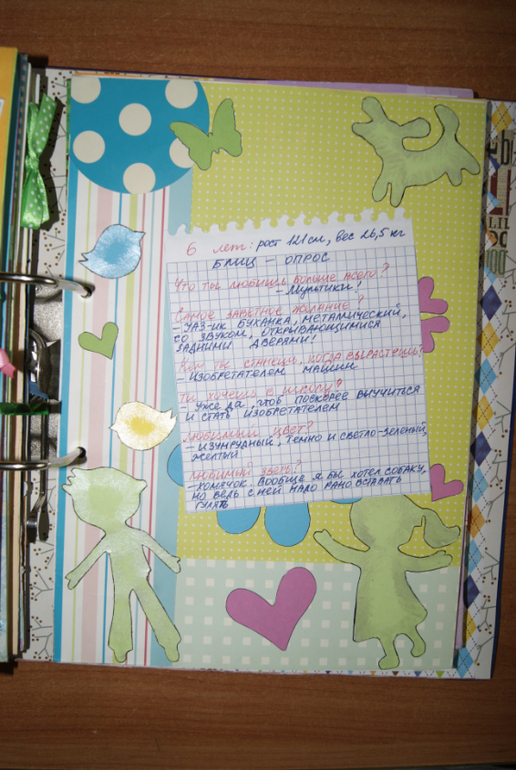 6 лет: рост 121 см, вес 26,5 кг
БЛИЦ - ОПРОС
Что ты любишь больше всего?
- Мультики!
Самое заветное желание?
- УАЗ-ик БУХАНКА, МЕТАЛЛИЧЕСКИЙ,
СО ЗВУКОМ, ОТКРЫВАЮЩИМИСЯ
ЗАДНИМИ ДВЕРЯМИ!
Кем ты станешь, когда вырастешь?
- ИЗОБРЕТАТЕЛЕМ МАШИН
Ты хочешь в школу?
- Уже да, чтоб поскорее выучиться
и стать изобретателем
Любимый цвет?
- ИЗУМРУДНЫЙ, ТЕМНО И СВЕТЛО-ЗЕЛЕНЫЙ,
ЖЕЛТЫЙ
Любимый зверь?
- ХОМЯЧОК. ВООБЩЕ Я БЫ ХОТЕЛ СОБАКУ,
НО ВЕДЬ С НЕЙ НАДО РАНО ВСТАВАТЬ
ГУЛЯТЬ